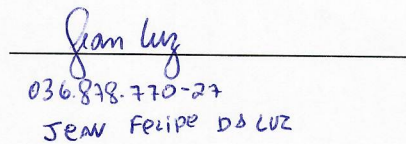 Jean Luz
036.878.770-27
JEAN FELIPE DA LUZ